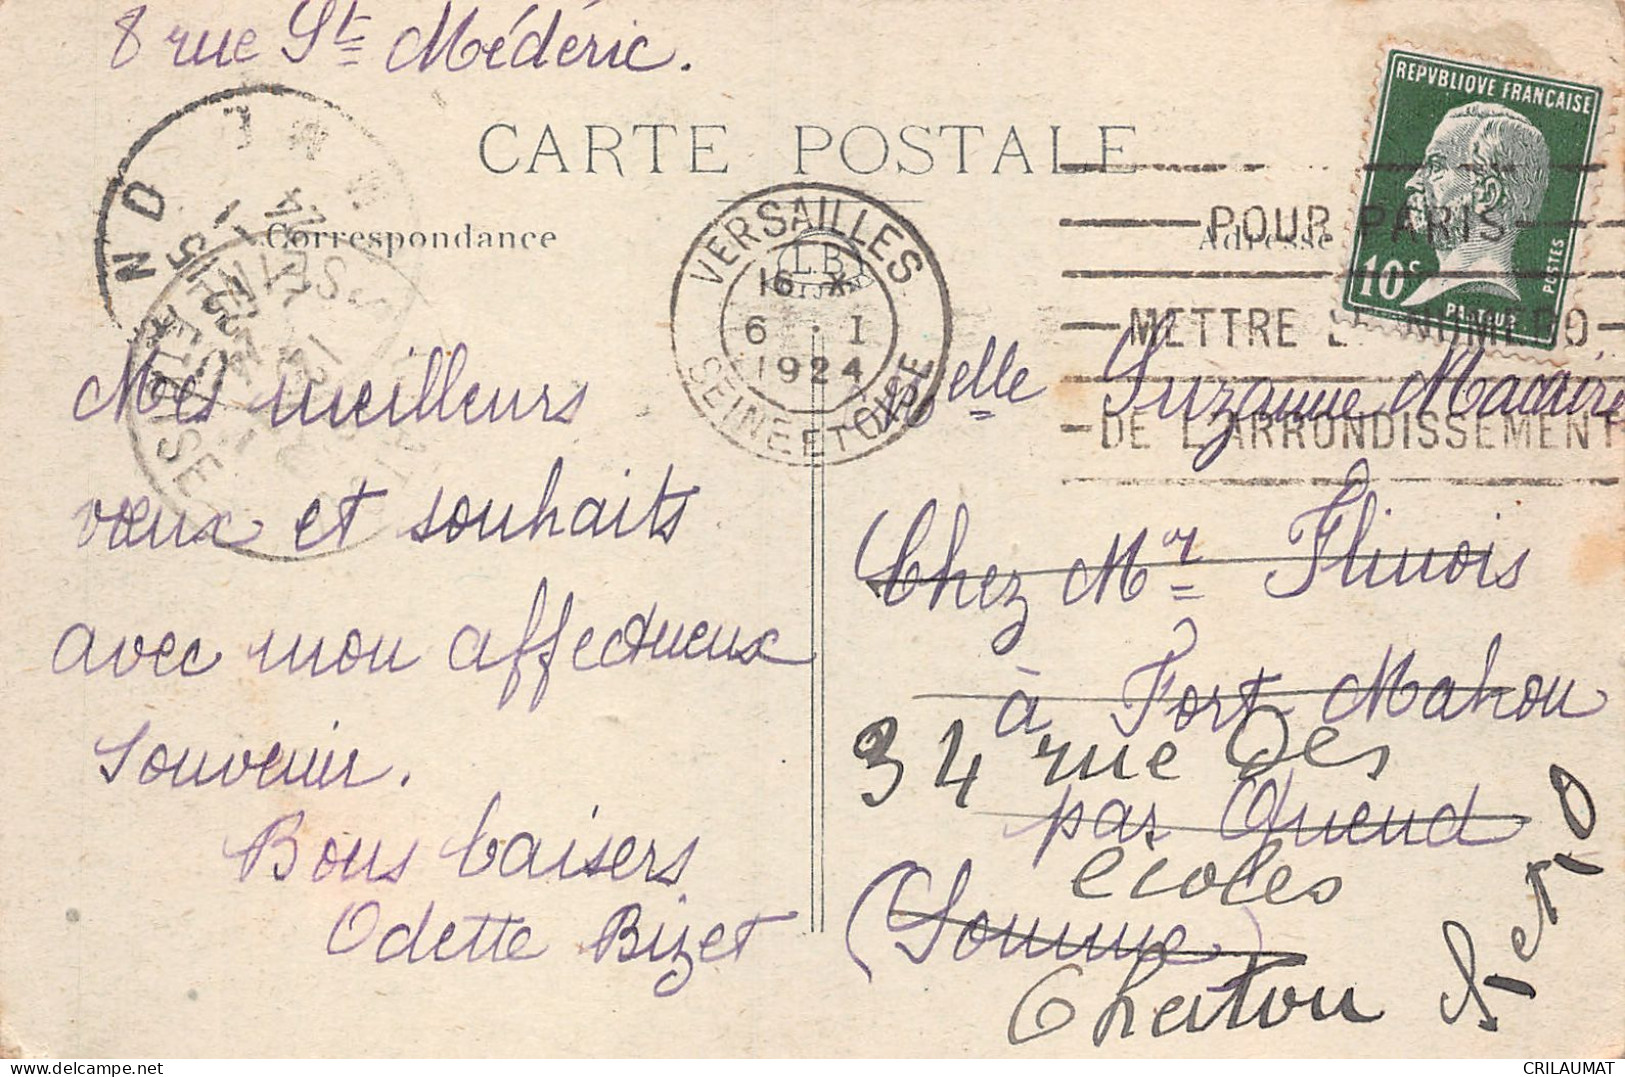 8 rue St Médéric.
CARTE POSTALE
Correspondance
Adresse
REPVBLIQVE FRANÇAISE
10c
POSTES
PASTEUR
VERSAILLES
16 X
6 . I
1924
SEINE ET OISE
POUR PARIS
METTRE LE NUMERO
DE L'ARRONDISSEMENT
Mes meilleurs
vœux et souhaits
avec mon affectueux
souvenir.
Bons baisers
Odette Bizet
Melle Suzanne Macaire
Chez Mr Flinois
à Fort-Mahon
par Quend
(Somme)
34 rue Des
écoles
Chatou
S et O
CRILAUMAT